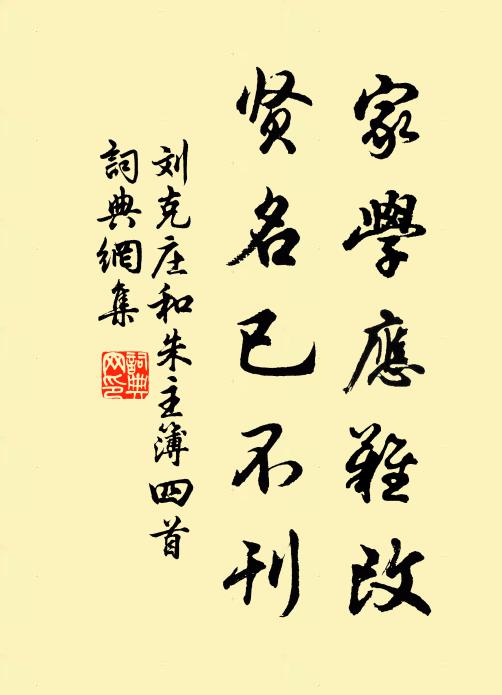 家學應難改
贤名已不刊
刘克庄和朱主簿四首
詞典網集
詞典网印